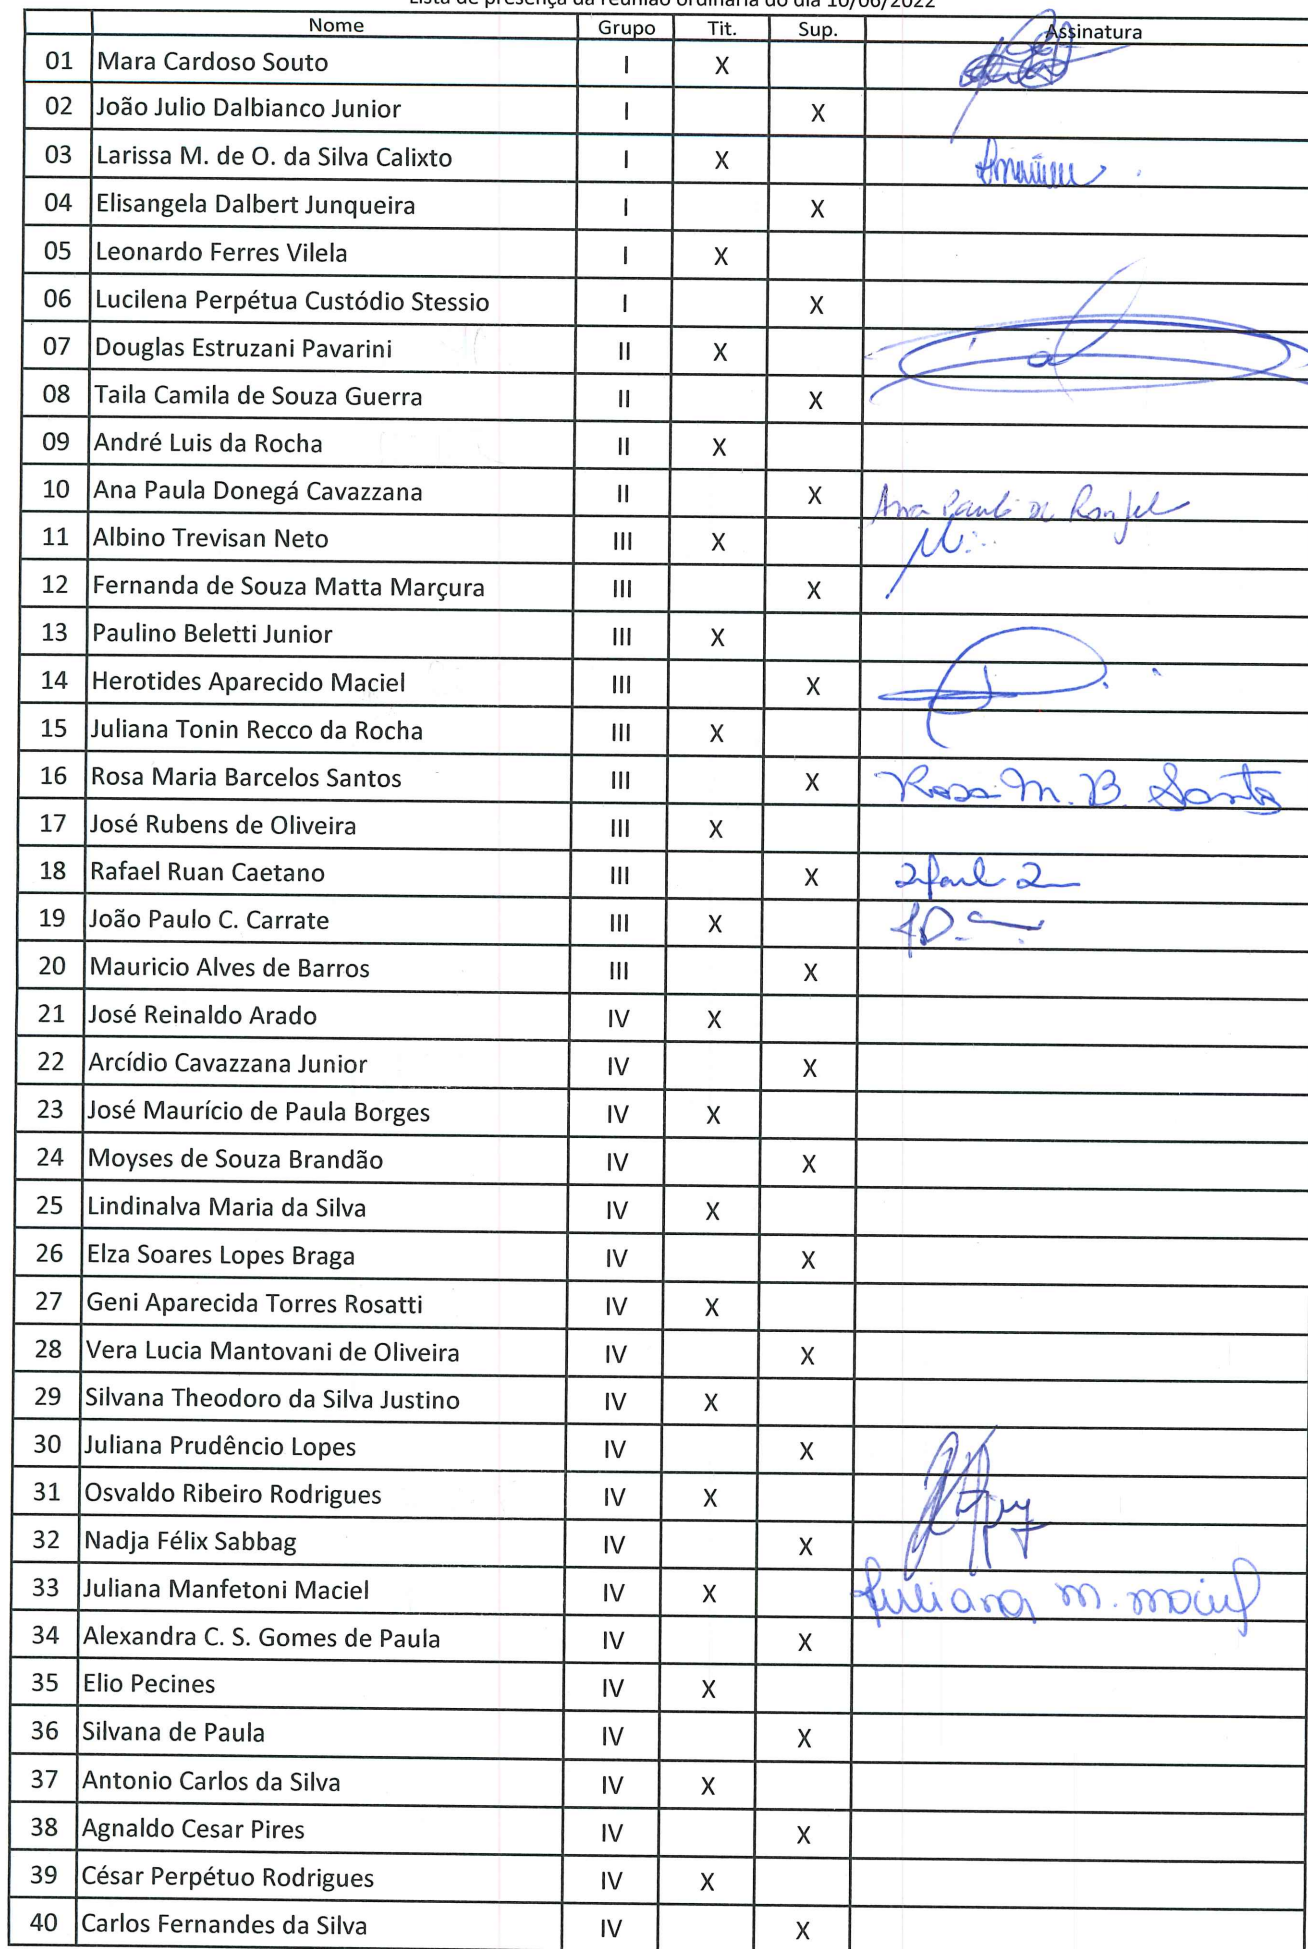 Lista de presença da reunião ordinária do dia 10/06/2022
Nome Grupo Tit. Sup. Assinatura
01 Mara Cardoso Souto I X
02 João Julio Dalbianco Junior I X
03 Larissa M. de O. da Silva Calixto I X
04 Elisangela Dalbert Junqueira I X
05 Leonardo Ferres Vilela I X
06 Lucilena Perpétua Custódio Stessio I X
07 Douglas Estruzani Pavarini II X
08 Taila Camila de Souza Guerra II X
09 André Luis da Rocha II X
10 Ana Paula Donegá Cavazzana II X Ana Paula
11 Albino Trevisan Neto III X
12 Fernanda de Souza Matta Marçura III X
13 Paulino Beletti Junior III X
14 Herotides Aparecido Maciel III X
15 Juliana Tonin Recco da Rocha III X
16 Rosa Maria Barcelos Santos III X Rosa M. B. Santos
17 José Rubens de Oliveira III X
18 Rafael Ruan Caetano III X
19 João Paulo C. Carrate III X
20 Mauricio Alves de Barros III X
21 José Reinaldo Arado IV X
22 Arcídio Cavazzana Junior IV X
23 José Maurício de Paula Borges IV X
24 Moyses de Souza Brandão IV X
25 Lindinalva Maria da Silva IV X
26 Elza Soares Lopes Braga IV X
27 Geni Aparecida Torres Rosatti IV X
28 Vera Lucia Mantovani de Oliveira IV X
29 Silvana Theodoro da Silva Justino IV X
30 Juliana Prudêncio Lopes IV X
31 Osvaldo Ribeiro Rodrigues IV X
32 Nadja Félix Sabbag IV X
33 Juliana Manfetoni Maciel IV X Juliana M. Maciel
34 Alexandra C. S. Gomes de Paula IV X
35 Elio Pecines IV X
36 Silvana de Paula IV X
37 Antonio Carlos da Silva IV X
38 Agnaldo Cesar Pires IV X
39 César Perpétuo Rodrigues IV X
40 Carlos Fernandes da Silva IV X